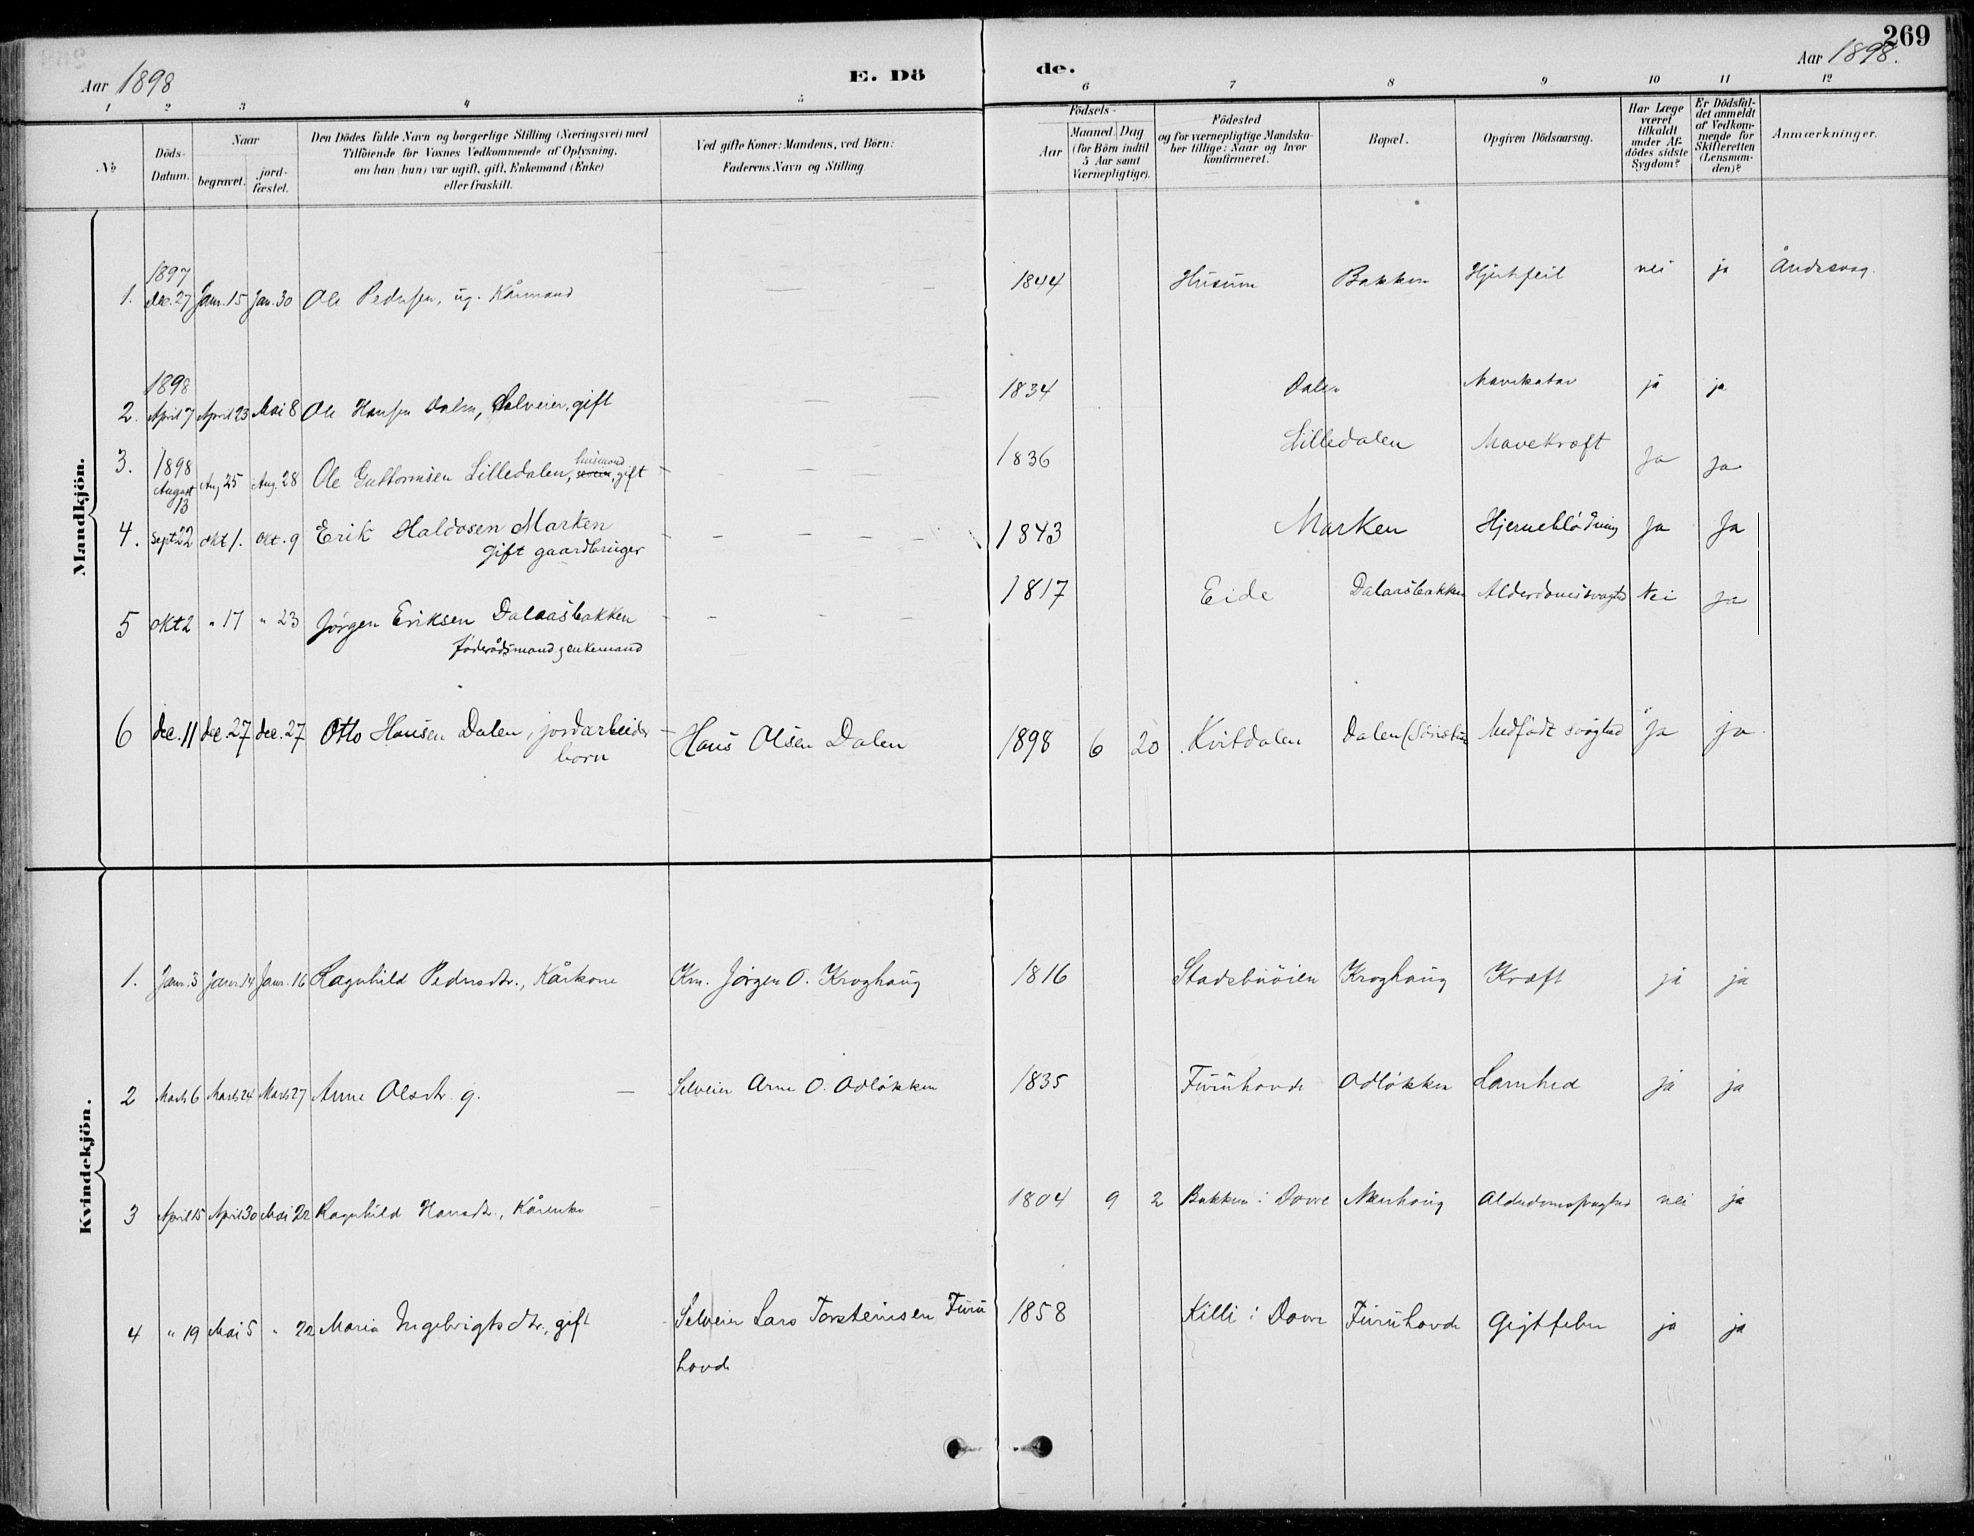 269
Aar 1898 E. Dö de. Aar 1898.
1 2 3 4 5 6 7 8 9 10 11 12
No
Döds-Datum.
Naar
begravet.
jord-fæstet.
Den Dödes fulde Navn og borgerlige Stilling (Næringsvei) med
Tilföiende for Voxnes Vedkommende af Oplysning.
om han (hun) var ugift, gift, Enkemand (Enke)
eller fraskilt.
Ved gifte Koner: Mandens, ved Börn:
Faderens Navn og Stilling
Födsels-
Aar
Maaned. Dag
(for Börn indtil
5 Aar samt
Værnepligtige).
Födested
og for værnepligtige Mandska-
ber tillige: Naar og hvor
konfirmeret.
Bopæl.
Opgiven Dödsaarsag.
Har Læge
været
tilkaldt
under Af-
dödes sidste
Sygdom?
Er Dödsfal-
det anmeldt
af Vedkom-
mende for
Skifteretten
(Lensman-
den)?
Anmærkninger.
Mandkjön.
1897
1. Dec. 27 Janr. 15 Jan. 30 Ole Pedersen, ug. Kårmand 1844 Husum Bakken Hjertefeil nei ja Åndssvag.
1898
2. April 7 April 23 Mai 8 Ole Hansen Dalen, Selveier, gift 1834 Dalen Mavekatar ja ja
3. 1898 August 13 Aug 25 Aug. 28 Ole Guttormsen Lilledalen, husmand, gift 1836 Lilledalen Mavekræft Ja Ja
4. Sept 22 okt 1. okt. 9 Erik Haldosen Marken 1843 Marken Hjerneblødning Ja Ja
gift gaardbruger
5 okt 2 " 17 " 23 Jørgen Eriksen Dalaasbakken 1817 Eide Dalaasbakken Alderdomssvaghed Nei Ja
føderådsmand, enkemand
6 dec. 11 dec. 27 dec. 27 Otto Hansen Dalen, jordarbeider Hans Olsen Dalen 1898 6 20 Kvitdalen Dalen Medfødt svaghed Ja ja
barn
Kvindekjön.
1. Janr. 3 Janr. 14 Janr. 16 Ragnhild Pedersdtr., Kårkone Km. Jørgen O. Kroghaug 1816 Stadsbuøien Kroghaug Kræft ja ja
2 Marts 6 Marts 24 Marts 27 Anne Olsdtr. g. Selveier Arne O. Odløkken 1835 Furuhovde Odløkken Lamhed ja ja
3 April 15 April 30 Mai 22 Ragnhild Hansdtr., Kårenke 1804 9 2 Bakken i Dovre Alderdomssvaghed nei ja
4 " 19 Mai 5 " 22 Maria Ingebrigtsdtr., gift Selveier Lars Torsteinsen Furu 1858 Killi i Dovre Furuhovde Gigtfeber ja ja
hovde